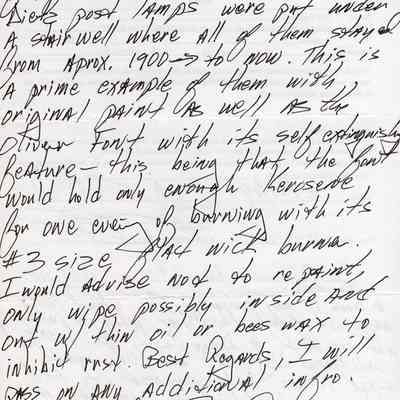 Dietz post lamps were put under
A stairwell where all of them stayed
from Aprox. 1900 → to now. This is
A prime example of them with
original paint As well As the
Oliver Font with its self extinguishing
feature - this being that the font
would hold only enough kerosene
for one even of burning with its
#3 size flat wick burner.
I would Advise not to repaint,
only wipe possibly inside And
out w/ thin oil or bees wax to
inhibit rust. Best Regards, I will
pass on Any Additional info.